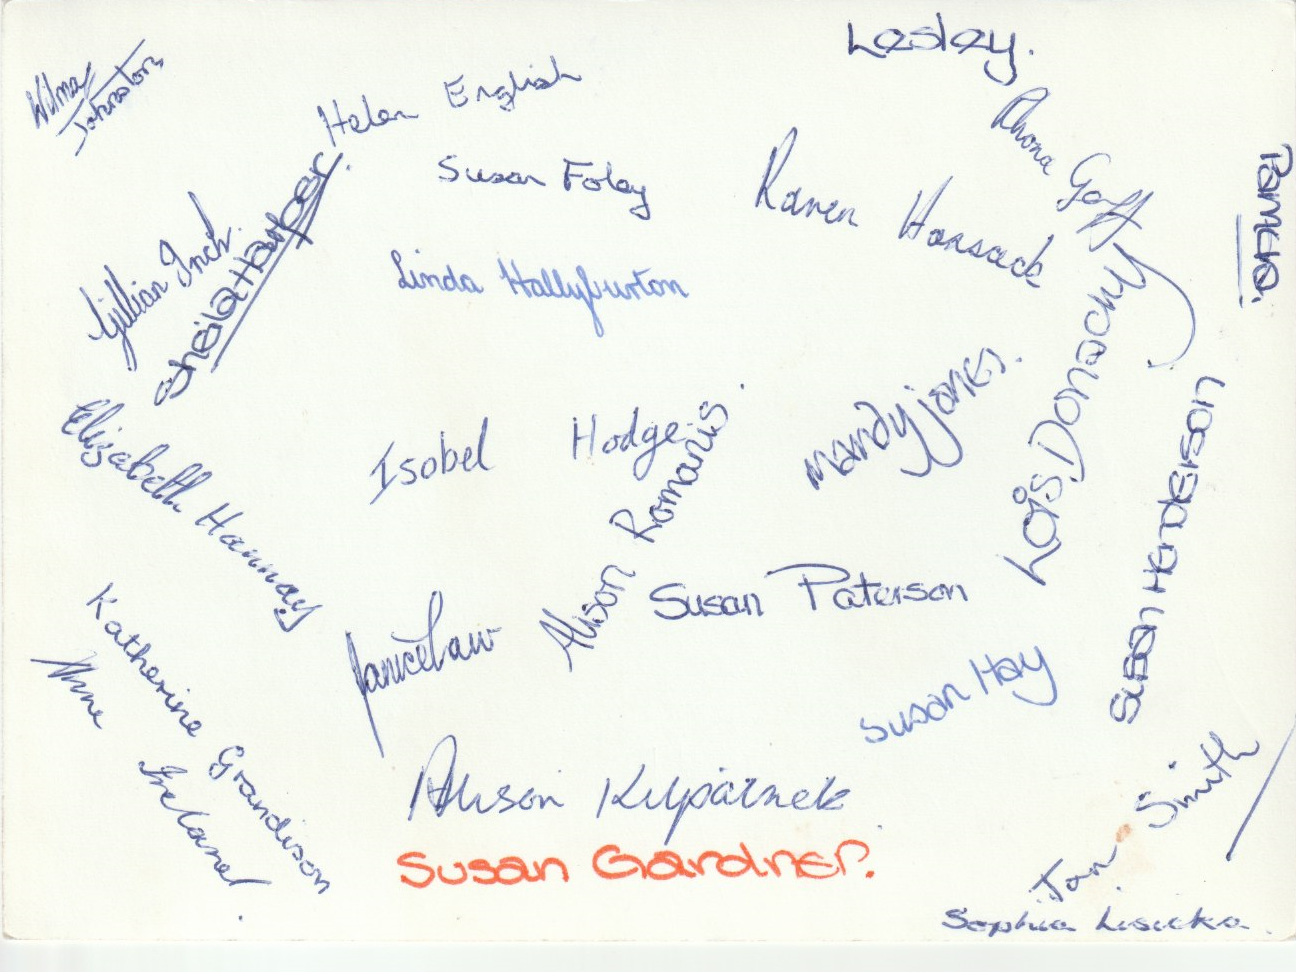 Lesley.
Wilma
Johnston
Helen English
Rhona Goff
Susan Foley
Karen Horsack
Pamela.
Gillian Inch.
Sheila Harper.
Linda Hallyburton
Lois Donachy
Mandy Jones.
Elizabeth Hannay
Isobel Hodge
Alison Romanis.
Susan Henderson
Susan Paterson
Janice Law
Katherine Grandison
Anne Ireland.
Susan Hay
Alison Kilpatrick
Jan Smith
Susan Gardner.
Sophia Lisicka.